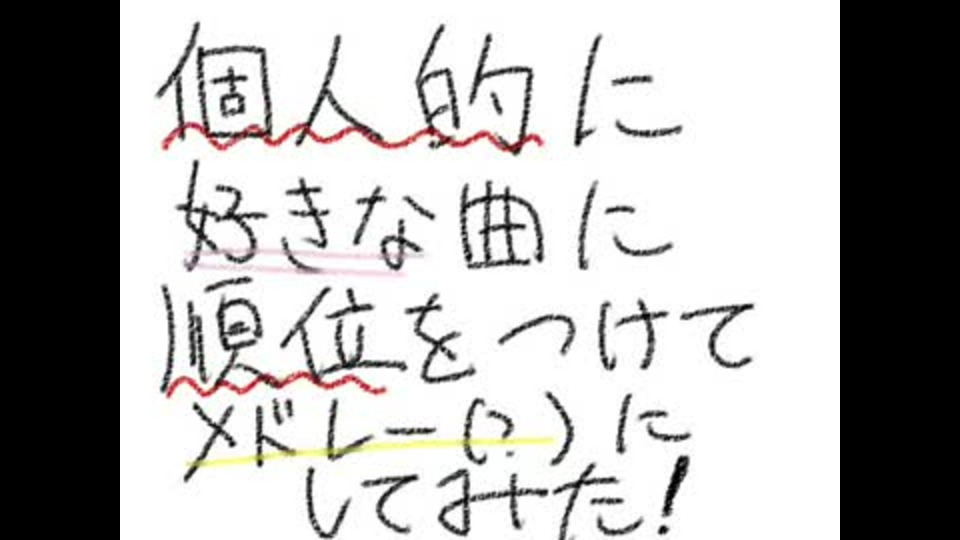 個人的に
好きな曲に
順位をつけて
メドレー(?)に
してみた!